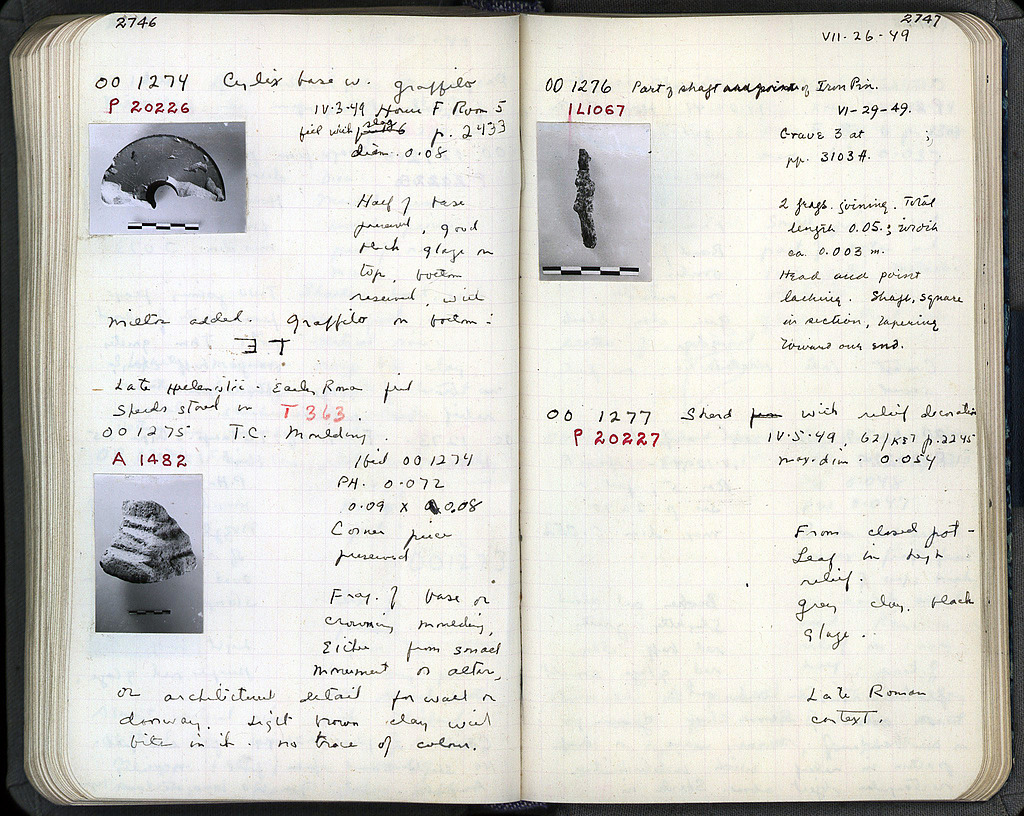 2746
OO 1274 Cylix base w. graffito
P 20226 IV·3·49 House F Room 5
fill with slag p. 2433
diam. 0.08
Half of base
preserved, good
black glaze on
top, bottom
reserved, with
miltos added. graffito on bottom:
— Late Hellenistic - Early Roman fill
Sherds stored in T 363.
OO 1275 T.C. Moulding.
A 1482 Ibid OO 1274
PH. 0.072
0.09 x 0.08
Corner piece
preserved
Frag. of base or
crowning moulding,
Either from small
monument or altar,
or architectural detail for wall or
doorway. Light brown clay with
bits in it. no trace of colour.
2747
VII·26·49
OO 1276 Part of shaft and point of Iron Pin.
IL1067 VI-29-49.
Grave 3 at
pp. 3103 ff.
2 frags. joining. Total
length 0.05; width
ca. 0.003 m.
Head and point
lacking. Shaft, square
in section, tapering
toward one end.
OO 1277 Sherd with relief decoration
P 20227 IV·5·49, 62/ΚΣΤ p. 2245
max. dim. 0.054
From closed pot -
Leaf in high
relief.
Grey clay. black
glaze.
Late Roman
context.